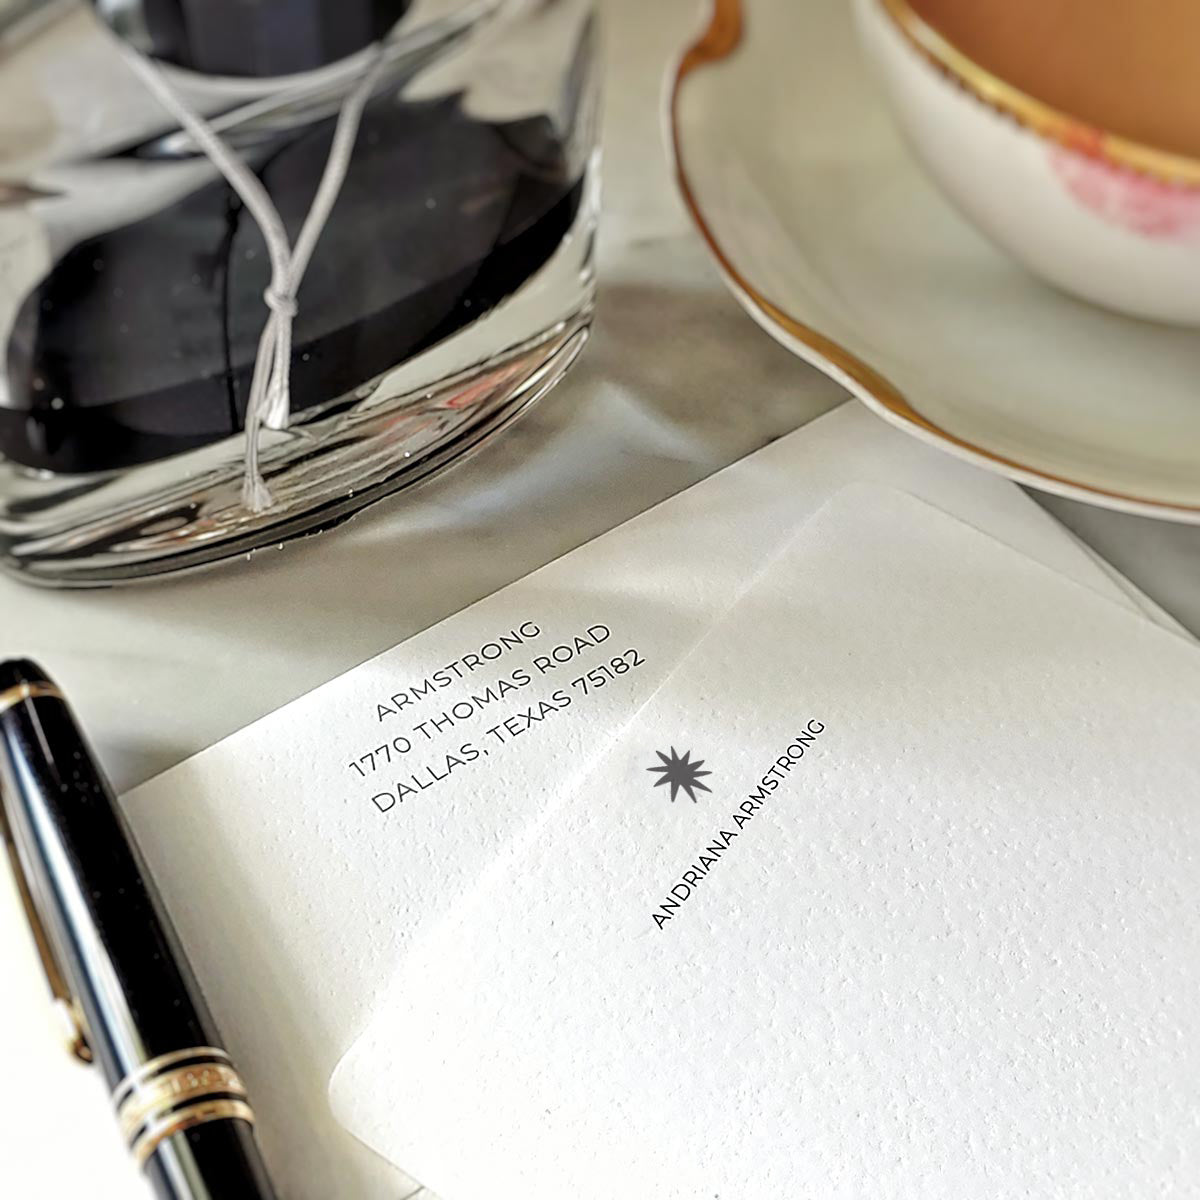 ARMSTRONG
1770 THOMAS ROAD
DALLAS, TEXAS 75182
ANDRIANA ARMSTRONG